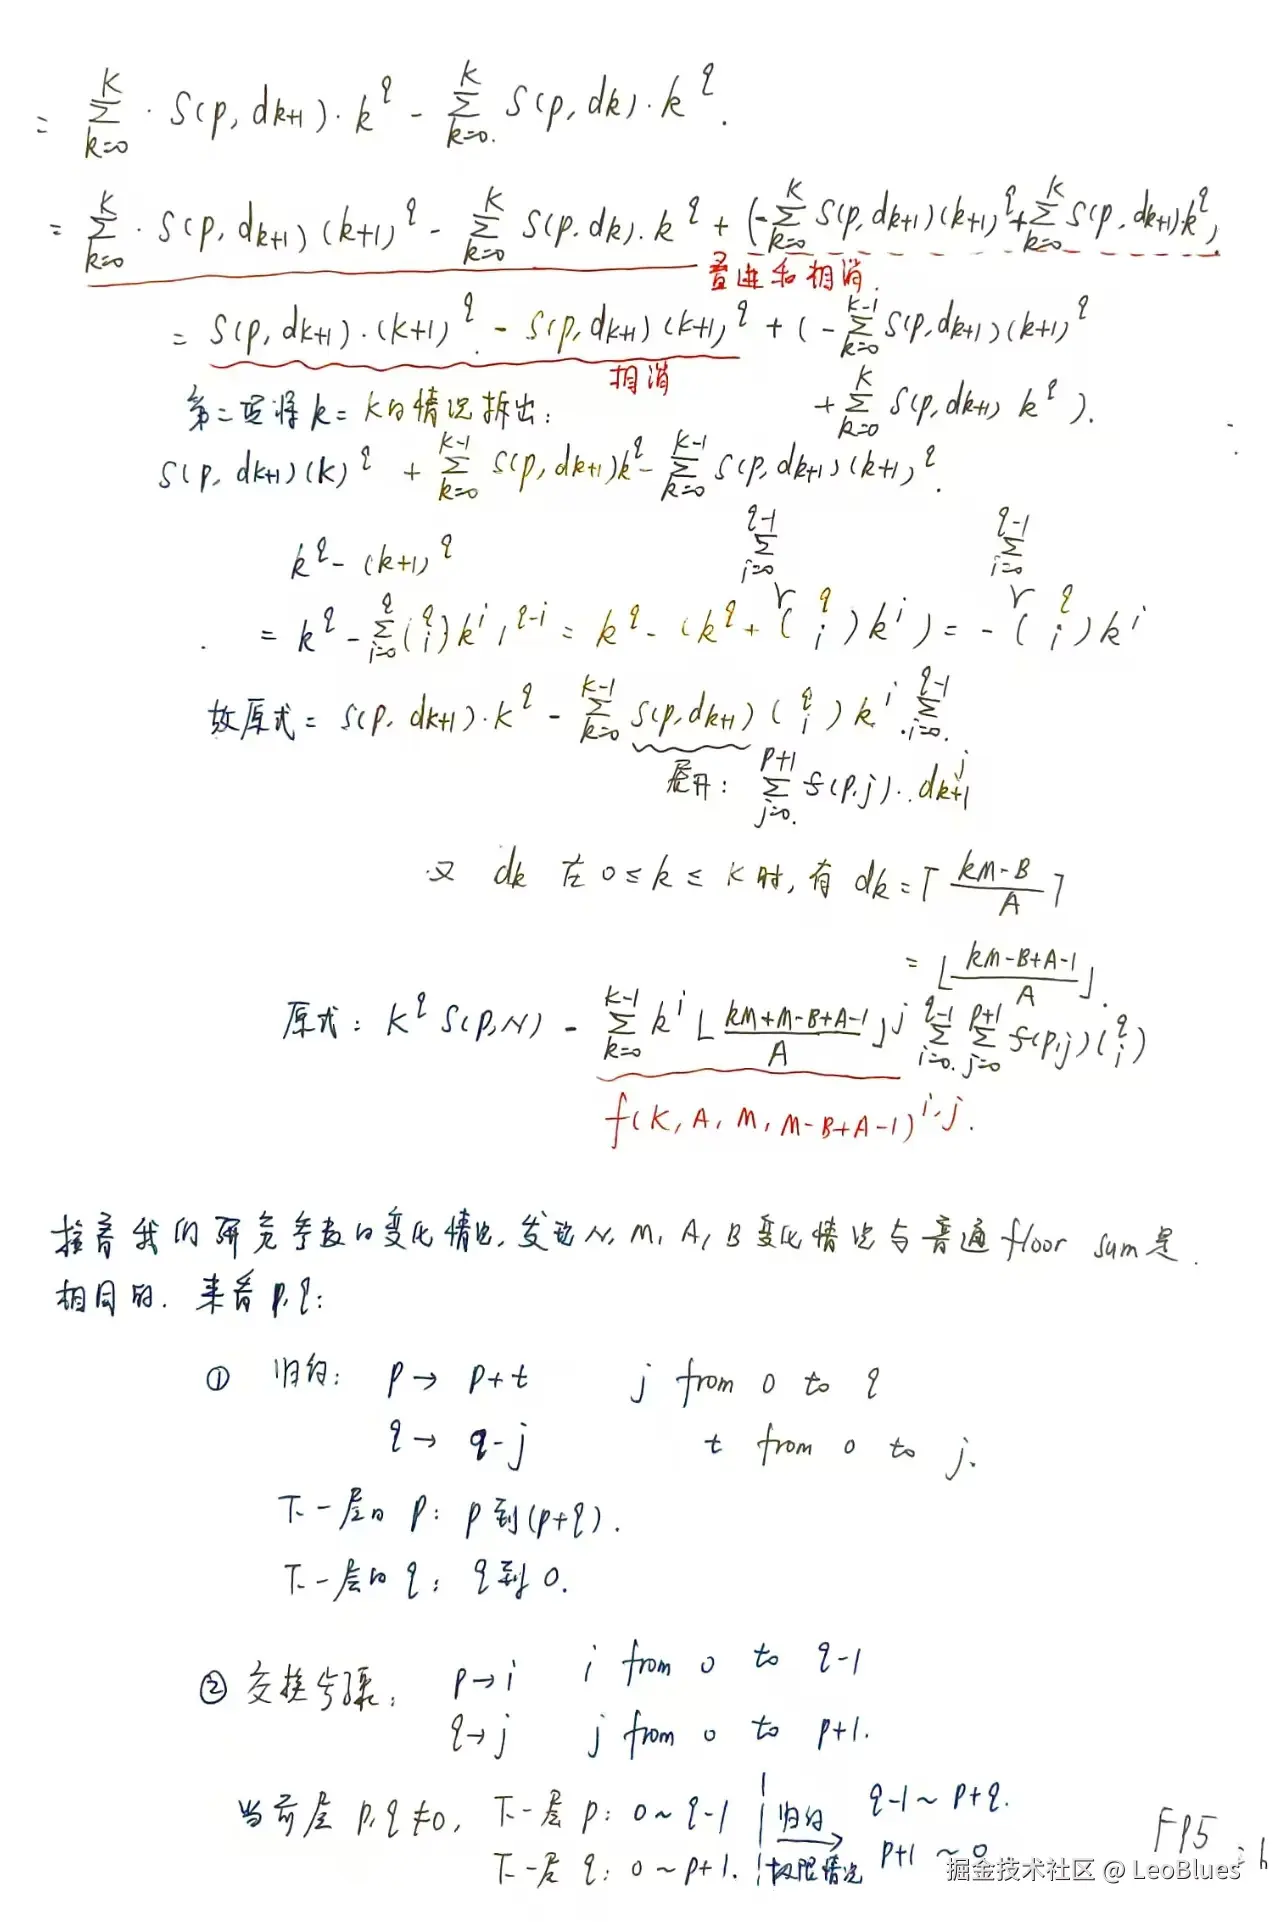 = ∑_{k=0}^{K} · S(p, d_{k+1}) · k^q - ∑_{k=0}^{K} S(p, d_k) · k^q.
= ∑_{k=0}^{K} · S(p, d_{k+1}) (k+1)^q - ∑_{k=0}^{K} S(p, d_k) · k^q + (-∑_{k=0}^{K} S(p, d_{k+1}) (k+1)^q + ∑_{k=0}^{K} S(p, d_{k+1}) k^q)
错进和相消.
= S(p, d_{K+1}) · (K+1)^q - S(p, d_{K+1}) (K+1)^q + (-∑_{k=0}^{K-1} S(p, d_{k+1}) (k+1)^q
相消
+ ∑_{k=0}^{K} S(p, d_{k+1}) k^q ).
第二项将 k = K 的情况拆出:
S(p, d_{K+1}) (K)^q + ∑_{k=0}^{K-1} S(p, d_{k+1}) k^q - ∑_{k=0}^{K-1} S(p, d_{k+1}) (k+1)^q.
k^q - (k+1)^q
∑_{i=0}^{q-1} ∑_{i=0}^{q-1}
= k^q - ∑_{i=0}^{q} (q i) k^i 1^{q-i} = k^q - (k^q + (q i) k^i) = - (q i) k^i
故原式 = S(p, d_{K+1}) · K^q - ∑_{k=0}^{K-1} S(p, d_{k+1}) (q i) k^i · ∑_{i=0}^{q-1}
展开: ∑_{j=0}^{p+1} f(p, j) · d_{k+1}^j
又 d_k 在 0 ≤ k ≤ K 时, 有 d_k = ⌈(kM-B)/A⌉
= ⌊(kM-B+A-1)/A⌋.
原式: K^q S(p, N) - ∑_{k=0}^{K-1} k^i ⌊(kM+M-B+A-1)/A⌋^j ∑_{i=0}^{q-1} ∑_{j=0}^{p+1} f(p, j) (q i)
f(K, A, M, M-B+A-1)^{i, j}.
接着我们研究参数的变化情况, 发现 N, M, A, B 变化情况与普通 floor sum 是
相同的. 来看 p, q:
① 归约: p → p+t j from 0 to q
q → q-j t from 0 to j.
下一层的 p: p 到 (p+q).
下一层的 q: q 到 0.
② 交换步骤: p → i i from 0 to q-1
q → j j from 0 to p+1.
当前层 p, q ≠ 0, 下一层 p: 0 ~ q-1 归约 q-1 ~ p+q.
下一层 q: 0 ~ p+1. 极限情况 p+1 ~ 0
FP5
掘金技术社区 @ LeoBlues